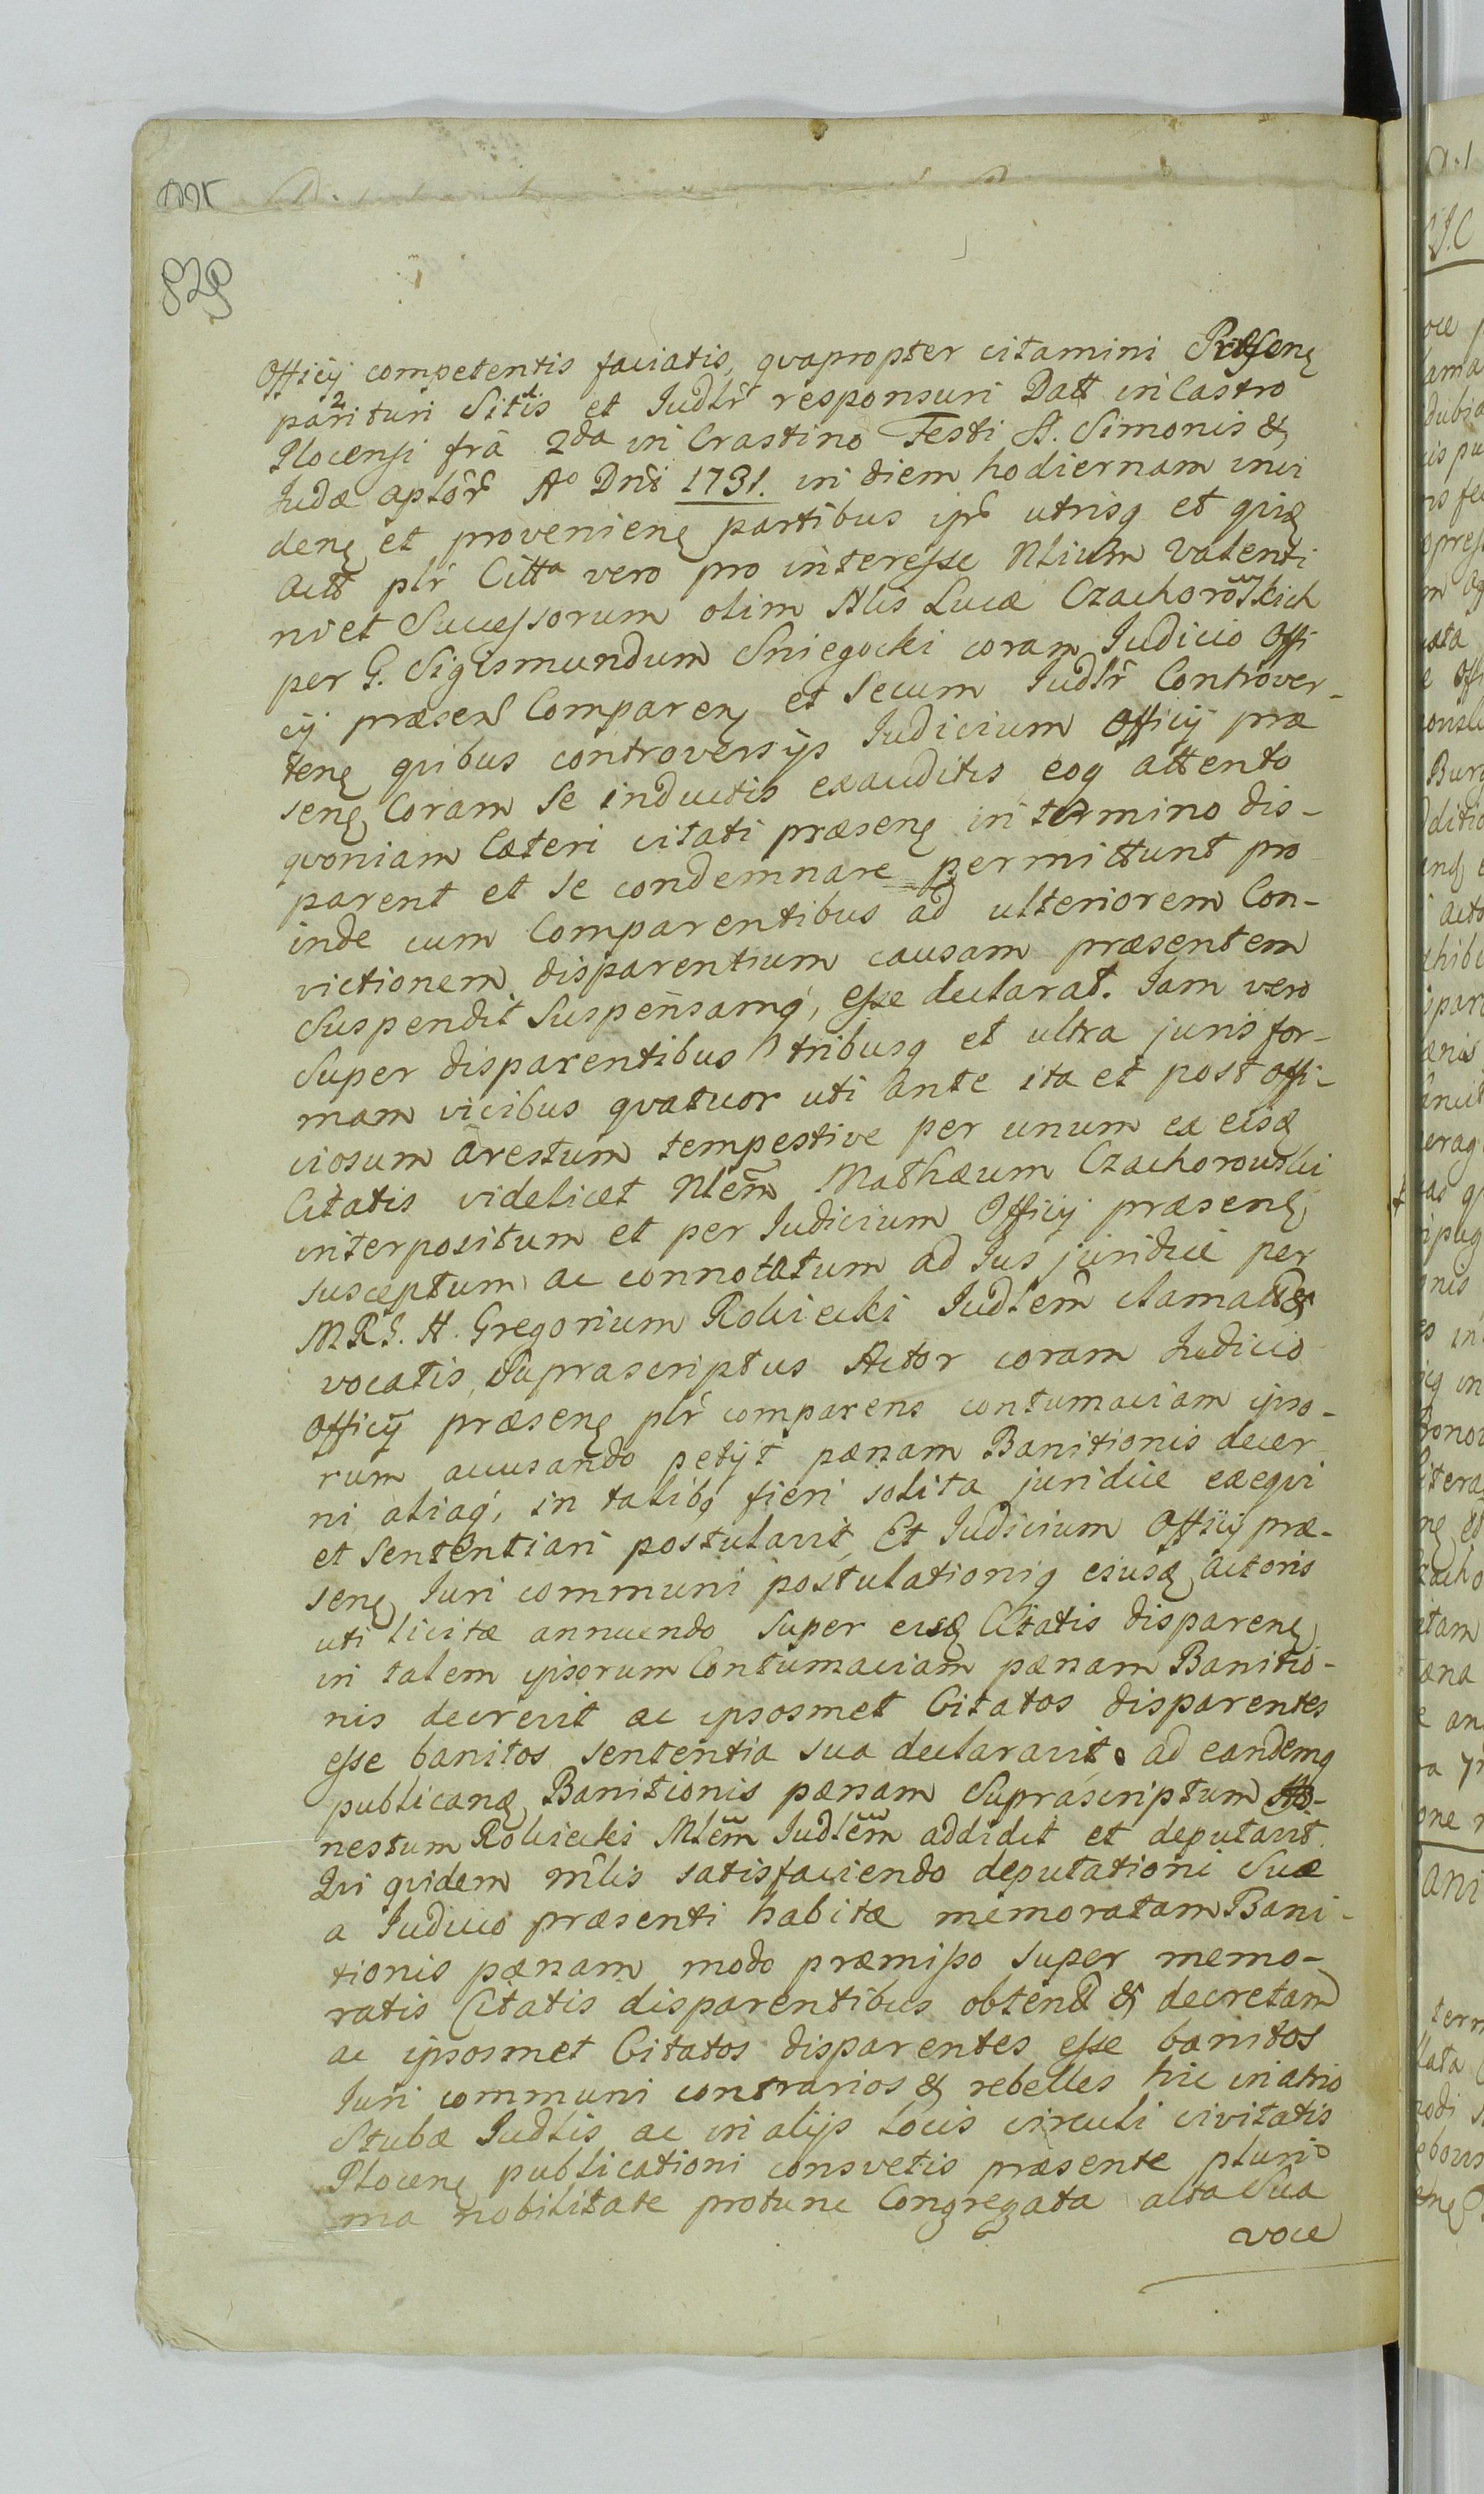 829
Officÿ competentis faciatis, qvapropter citamini Præsenɋ
parituri Sitis et Judlr̃ responsuri Datt in Castro
Plocensi frã 2da in Crastino Festi S. Simonis &
Judæ aplor̃ Aº Dnĩ 1731. in diem hodiernam inci
denɋ et provenienɋ partibus ipĩs utrisq et qvidɋ
Actt plr̃ Citta vero pro interesse Nlium Valenti
ni et Successorum olim Nlis Lucæ Czachorowskich
per G. Sigismundum Sniegocki coram Judicio Offi
cÿ præsenɋ Comparenɋ et Secum Judlr̃ Controver-
tenɋ qvibus controversÿs Judicium Officÿ præ
senɋ Coram Se inductis exauditis, eoq attento
qvoniam Cæteri citati præsenɋ in termino dis-
parent et se condemnare permittunt pro
inde cum Comparentibus ad ulteriorem Con-
victionem disparentium causam præsentem
Suspendit Suspensamq, esse declarat. Jam vero
Super disparentibus tribusq et ultra juris for-
mam vicibus qvatuor uti ante ita et post offi-
ciosum Arestum tempestive per unum ex eisɋ
Citatis videlicet Nlem̃ Mathæum Czachorowski
interpositum et per Judicium Officÿ præsenɋ
susceptum ac connotatum ad Jus juridice per
M.R.J. H. Gregorium Rokicki Judlem̃ clamatɋ &
vocatis, Suprascriptus Actor coram Judicio
Officÿ præsenɋ plr̃ comparens contumaciam ipso-
rum accusando petÿt pænam Banitionis decer
ni aliaq, in talibɋ fieri solita juridice exeqvi
et Sententiari postulavit, Et Judicium Officÿ præ-
senɋ Juri communi postulationiq eiusɋ Actoris
uti licitæ annuendo Super eisɋ Citatis disparenɋ
in talem ipsorum Contumaciam pænam Banitio-
nis decrevit ac ipsosmet Citatos disparentes
esse banitos sententia sua declaravit ad eandemq
publicanɋ Banitionis pænam Suprascriptum Ho-
nestum Rokicki Mlem̃ Judlem̃ addidit et deputavit.
Qvi qvidem mlis satisfaciendo deputationi Suæ
a Judicio præsenti habitæ memoratam Bani-
tionis pænam modo præmisso super memo-
ratis Citatis disparentibus obtenɋ & decretam
ac ipsosmet Citatos disparentes esse banitos
Juri communi contrarios & rebelles hic in atrio
Stubæ Judlis ac in alÿs Locis circuli civitatis
Plocenɋ publicationi consvetis præsente pluri-
ma nobilitate protunc Congregata alta Sua
voce